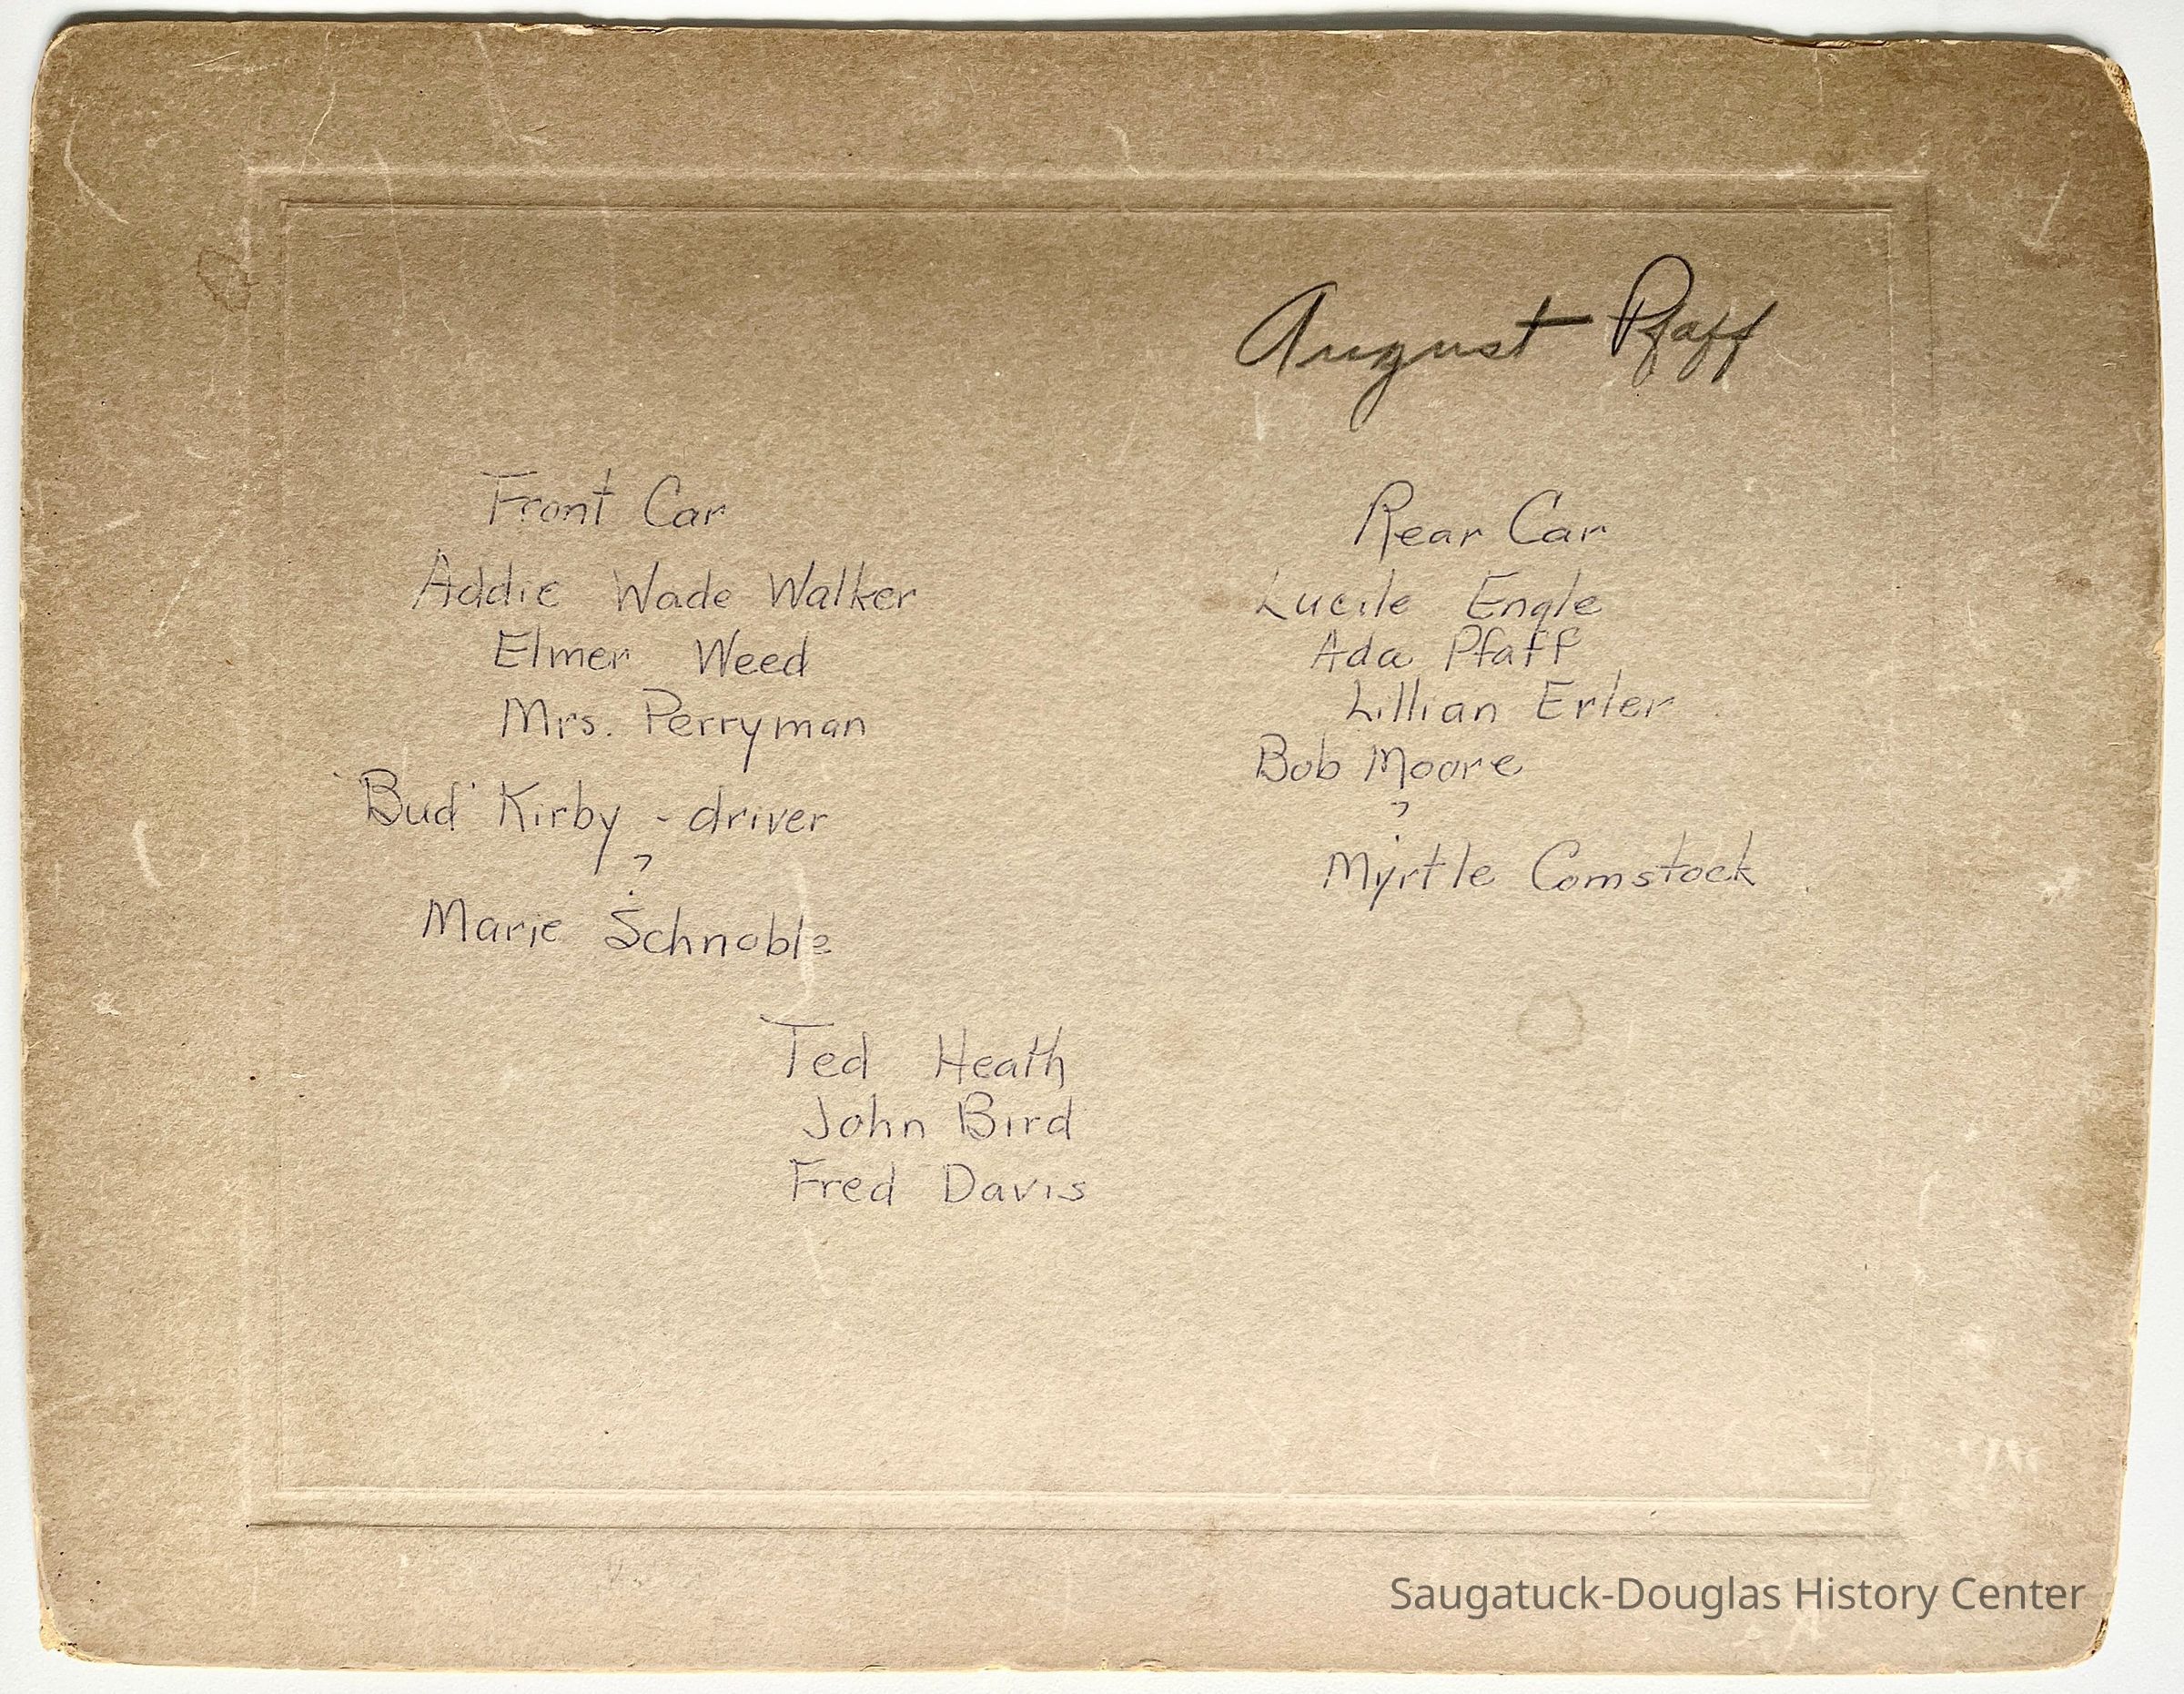 August Pfaff
Front Car
Addie Wade Walker
Elmer Weed
Mrs. Perryman
"Bud" Kirby - driver
?
Marie Schnoble
Rear Car
Lucile Engle
Ada Pfaff
Lillian Erler
Bob Moore
?
Myrtle Comstock
Ted Heath
John Bird
Fred Davis
Saugatuck-Douglas History Center